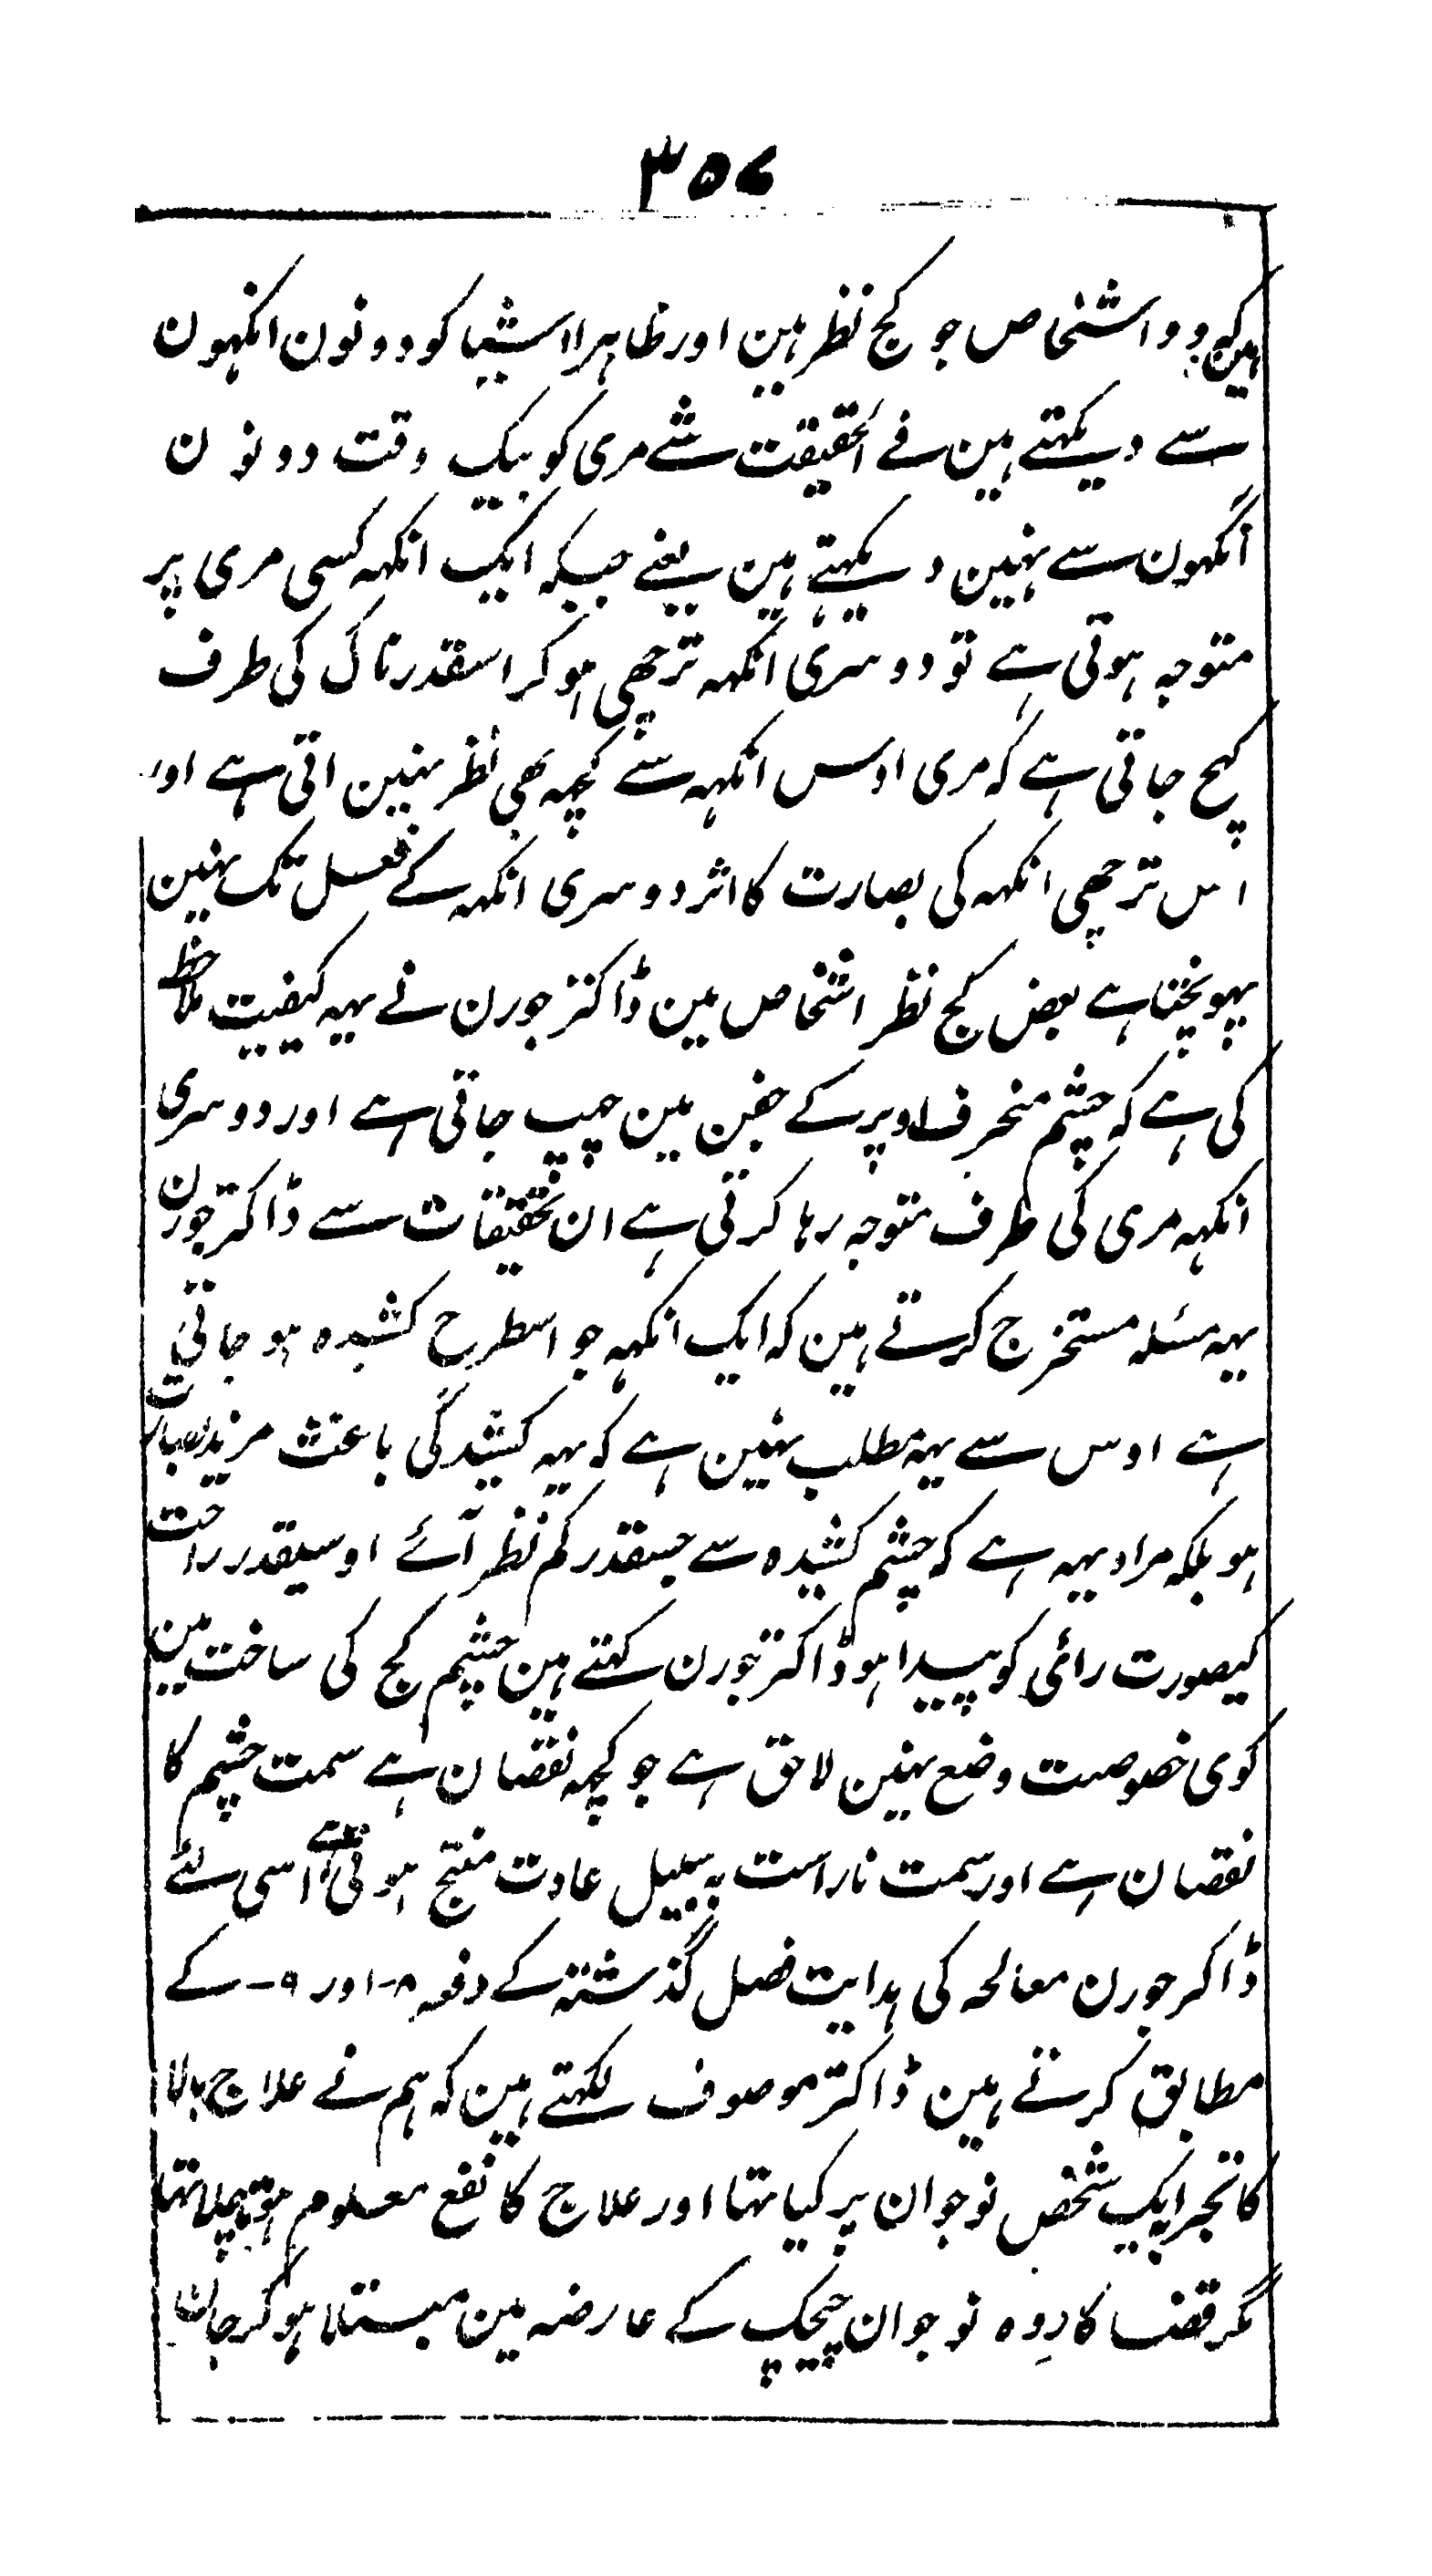 ۳۵۷
ہین کہ وو اشخاص جو کج نظر ہین اور ظاہرا اشیا کو دونون انکہون
سے دیکہتے ہین فے الحقیقت شے مری کو بیک وقت دونون
آنکہون سے نہین دیکہتے ہین یعنے جبکہ ایک انکہہ کسی مری پر
متوجہ ہوتی ہے تو دوسری انکہہ ترچھی ہو کر اسقدر ناک کی طرف
کہچ جاتی ہے کہ مری اوس انکہہ سے کچہہ بھی نظر نہین اتی ہے اور
اس ترچھی انکہہ کی بصارت کا اثر دوسری انکہہ کے فعل تک نہین
پہونچتا ہے بعض کج نظر اشخاص مین ڈاکتر جورن نے یہہ کیفیت ملاحظہ
کی ہے کہ چشم منحرف اوپر کے جفن مین چہپ جاتی ہے اور دوسری
انکہہ مری کی طرف متوجہ رہا کرتی ہے ان تحقیقات سے ڈاکتر جورن
یہہ مسئلہ مستخرج کرتے ہین کہ ایک انکہہ جو اسطرح کشیدہ ہو جاتی
ہے اوس سے یہہ مطلب نہین ہے کہ یہہ کشیدگی باعث مزید بصارت
ہو بلکہ مراد یہہ ہے کہ چشم کشیدہ سے جسقدر کم نظر آئے اوسیقدر راحت
کیصورت رائی کو پیدا ہو ڈاکتر جورن کہتے ہین چشم کج کی ساخت مین
کوی خصوصیت وضع نہین لاحق ہے جو کچہہ نقصان ہے سمت چشم کا
نقصان ہے اور سمت ناراست بہ سبیل عادت منتج ہوتی ہے اسی لئے
ڈاکر جورن معالجہ کی ہدایت فصل گذشتہ کے دفعہ ۸- اور ۹- کے
مطابق کرتے ہین ڈاکتر موصوف لکہتے ہین کہ ہم نے علاج بالا
کا تجربہ ایک شخص نوجوان پر کیا تہا اور علاج کا نفع معلوم ہوتا چلا تہا
مگر قضا کار وہ نوجوان چیچک کے عارضہ مین مبتلا ہو کر جان